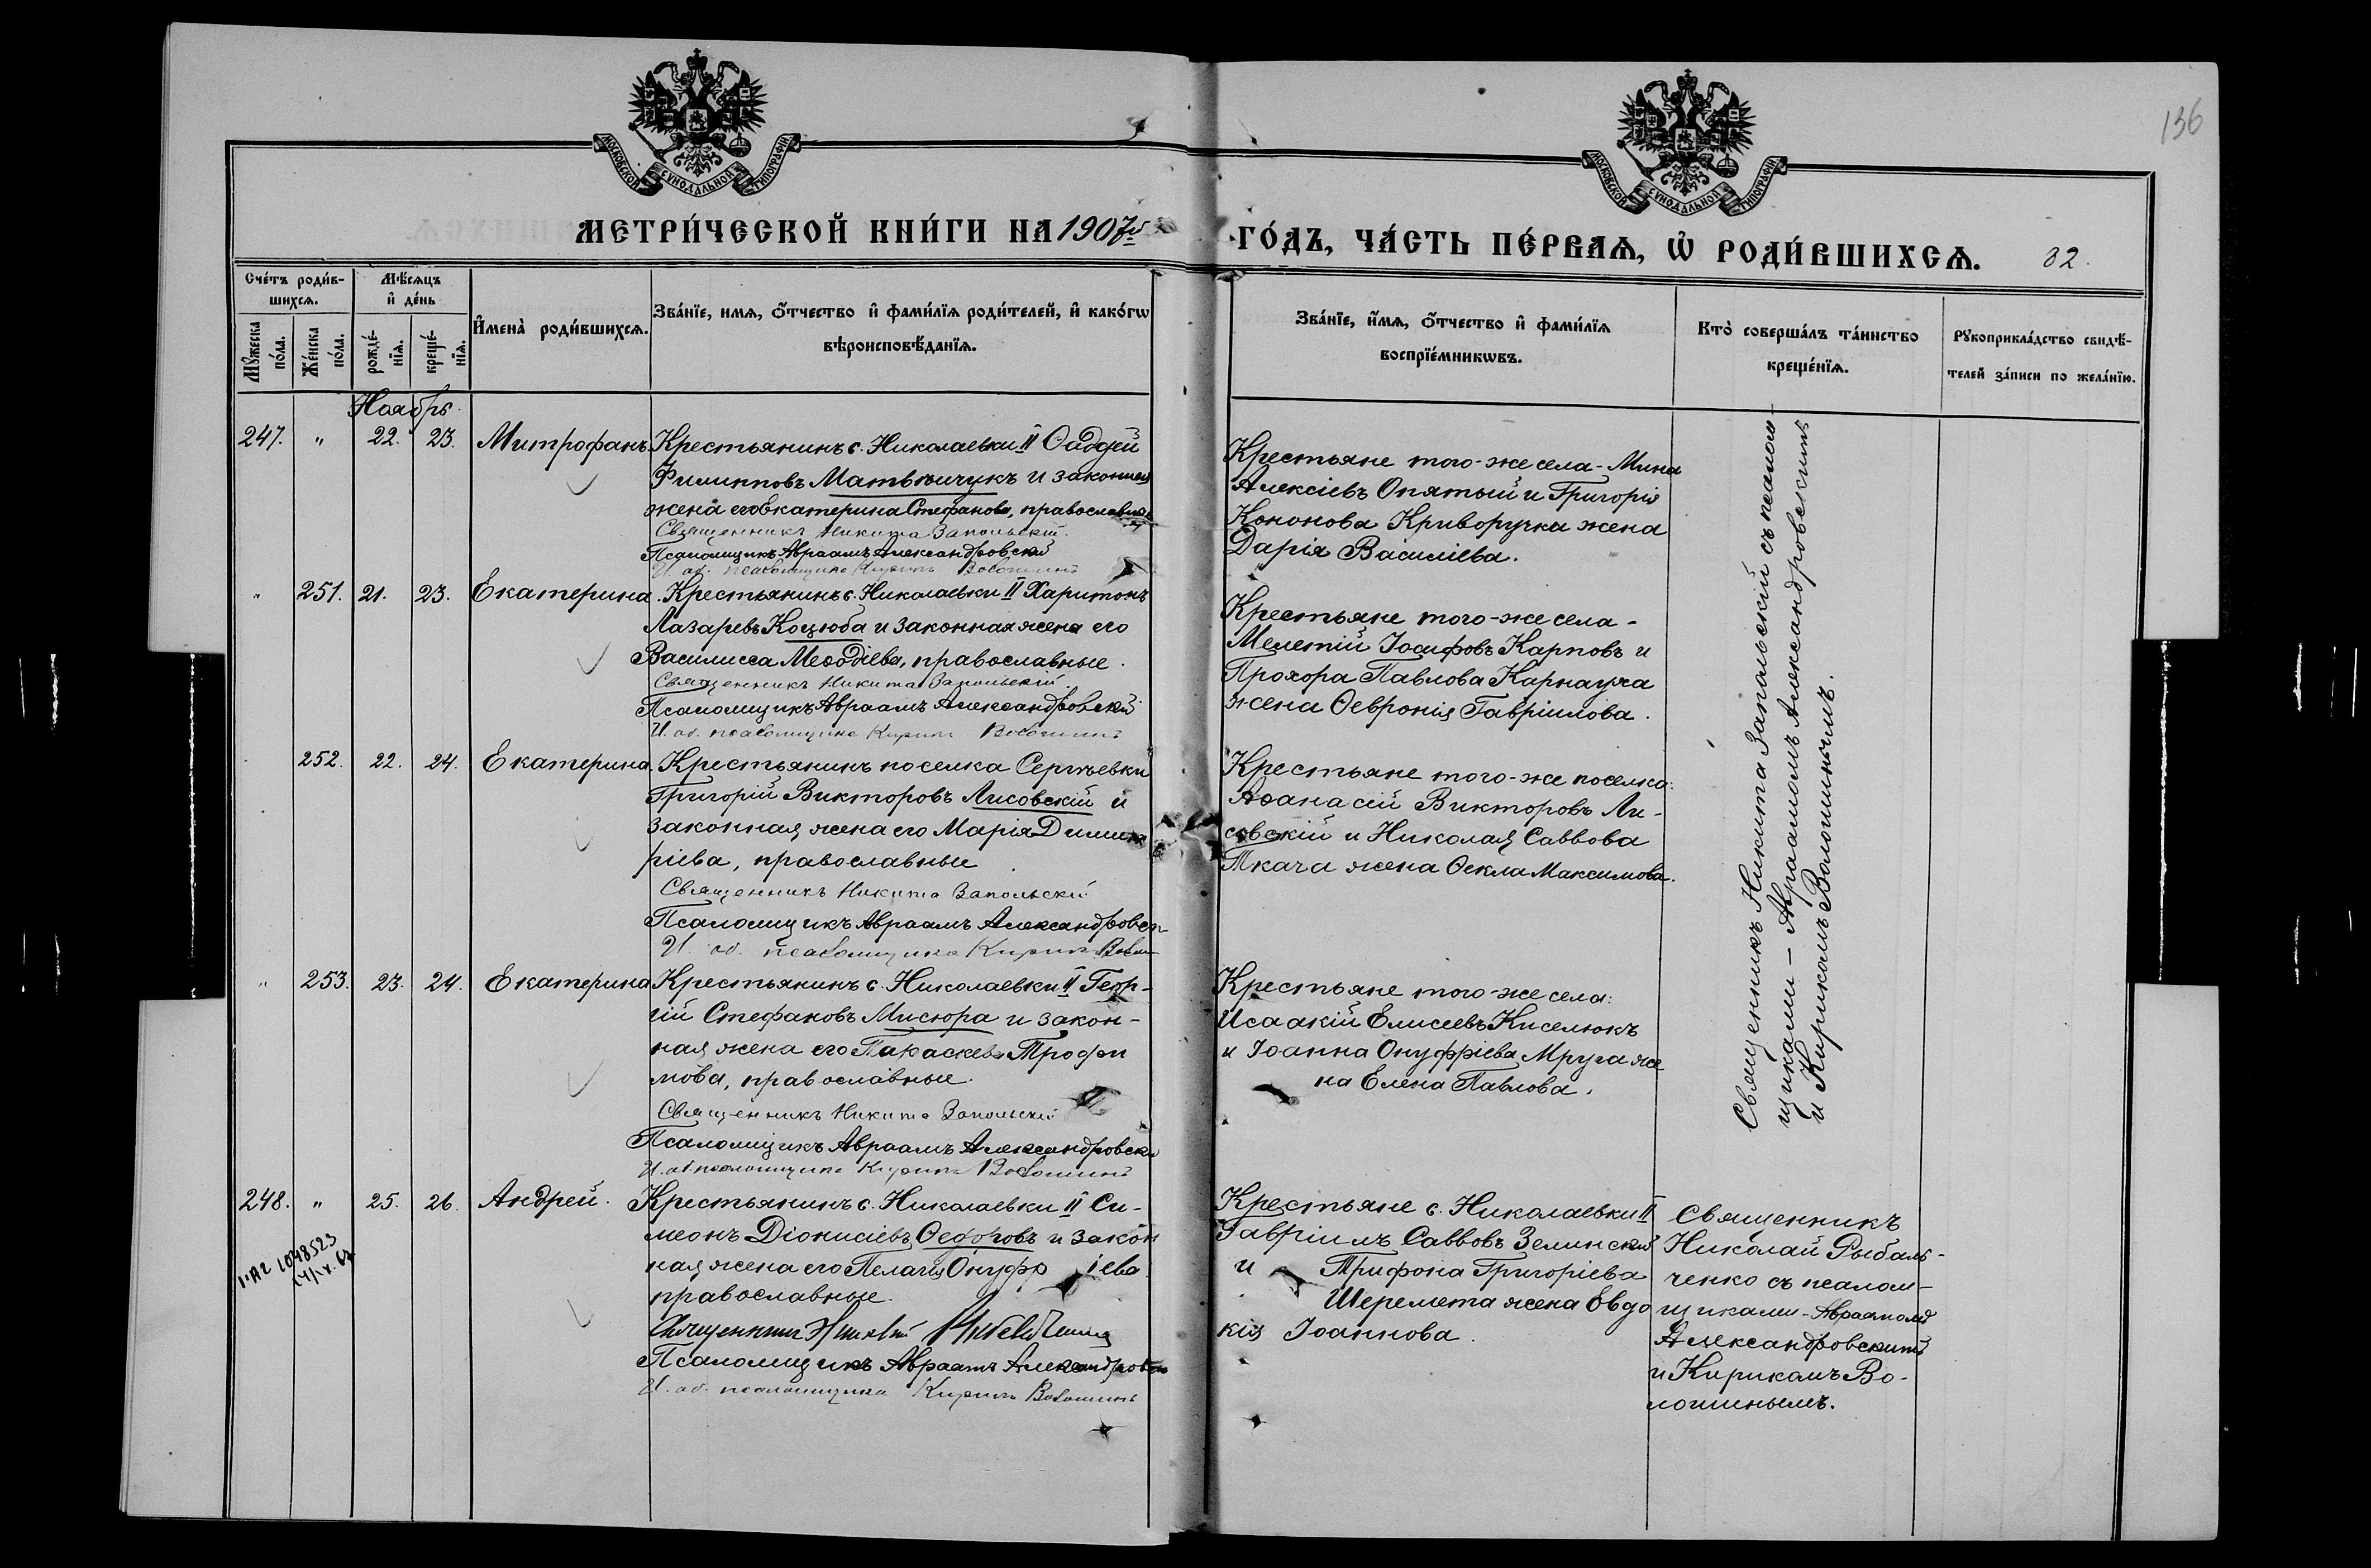 136
МОСКОВСКОЙ СѴНОДАЛЬНОЙ ТИПОГРАФІИ
МОСКОВСКОЙ СѴНОДАЛЬНОЙ ТИПОГРАФІИ
МЕТРИ́ЧЕСКОЙ КНИ́ГИ НА 1907й ГО́ДЪ, ЧА́СТЬ ПЕ́РВАѦ, Ѡ҆ РОДИ́ВШИХСѦ. 82.
Сче́тъ роди́в-
шихсѧ.
Мꙋ́жеска по́ла.
Же́нска по́ла.
Мѣ́сѧцъ
и҆ де́нь
рожде́-
нїѧ.
креще́-
нїѧ.
И҆мена̀ роди́вшихсѧ.
Зва́нїе, имѧ, ѻ҆́тчество и҆ фами́лїѧ роди́телей, и҆ како́гѡ
вѣроисповѣ́данїѧ.
Зва́нїе, и҆́мѧ, ѻ҆́тчество и҆ фами́лїѧ
воспрїе́мникѡвъ.
Кто̀ соверша́лъ та́инство
креще́нїѧ.
Рꙋкоприкла́дство свидѣ́-
телей за́писи по жела́нїю.
Ноябрь.
247. " 22. 23. Митрофанъ
Крестьянинъ с. Николаевки II Ѳаддей
Филипповъ Матвѣичукъ и законная
жена его Екатерина Стефанова, православные
Священникъ Никита Запольскій.
Псаломщикъ Авраамъ Александровскій
И. об. псаломщика Кирикъ Волошинъ
Крестьяне того-же села - Мина
Алексіевъ Опятый и Григорія
Кононова Криворучка жена
Дарія Василіева.
" 251. 21. 23. Екатерина.
Крестьянинъ с. Николаевки II Харитонъ
Лазаревъ Коцюба и законная жена его
Василисса Меѳодіева, православные.
Священникъ Никита Запольскій.
Псаломщикъ Авраамъ Александровскій
И. об. псаломщика Кирикъ Волошинъ
Крестьяне того-же села -
Мелетій Іосифовъ Карповъ и
Прохора Павлова Карнауха
жена Ѳевронія Гавріилова.
252. 22. 24. Екатерина.
Крестьянинъ поселка Сергѣевки
Григорій Викторовъ Лисовскій и
законная жена его Марія Димит
ріева, православные.
Священникъ Никита Запольскій
Псаломщикъ Авраамъ Александровск
И. об. псаломщика Кирикъ Волош
Крестьяне того-же поселка:
Аѳанасій Викторовъ Ли-
совскій и Николая Саввова
Ткача жена Ѳекла Максимова.
" 253. 23. 24. Екатерина
Крестьянинъ с. Николаевки II Геор-
гій Стефановъ Мисюра и закон-
ная жена его Параскева Трофи
мова, православные.
Священникъ Никита Запольскій
Псаломщикъ Авраамъ Александровскі
И. об. псаломщика Кирикъ Волошинъ
Крестьяне того-же села:
Исаакій Елисеевъ Киселюкъ
и Іоанна Онуфріева Мруга же
на Елена Павлова.
Священникъ Никита Запольскій съ псалом-
щиками - Авраамомъ Александровскимъ
и Кирикомъ Волошинымъ.
248. " 25. 26. Андрей.
Крестьянинъ с. Николаевки II Си-
меонъ Діонисіевъ Ѳедоровъ и закон
ная жена его Пелагія Онуфр іева
православные.
Священникъ Николай Рыбальченко
Псаломщикъ Авраамъ Александровскі
И. об. псаломщика Кирикъ Волошинъ
Крестьяне с. Николаевки II
Гавріилъ Саввовъ Зелинскій
и Трифона Григоріева
Шеремета жена Евдо
кія Іоаннова.
Священникъ
Николай Рыбаль-
ченко съ псалом-
щиками - Авраамомъ
Александровскимъ
и Кирикомъ Во-
лошинымъ.